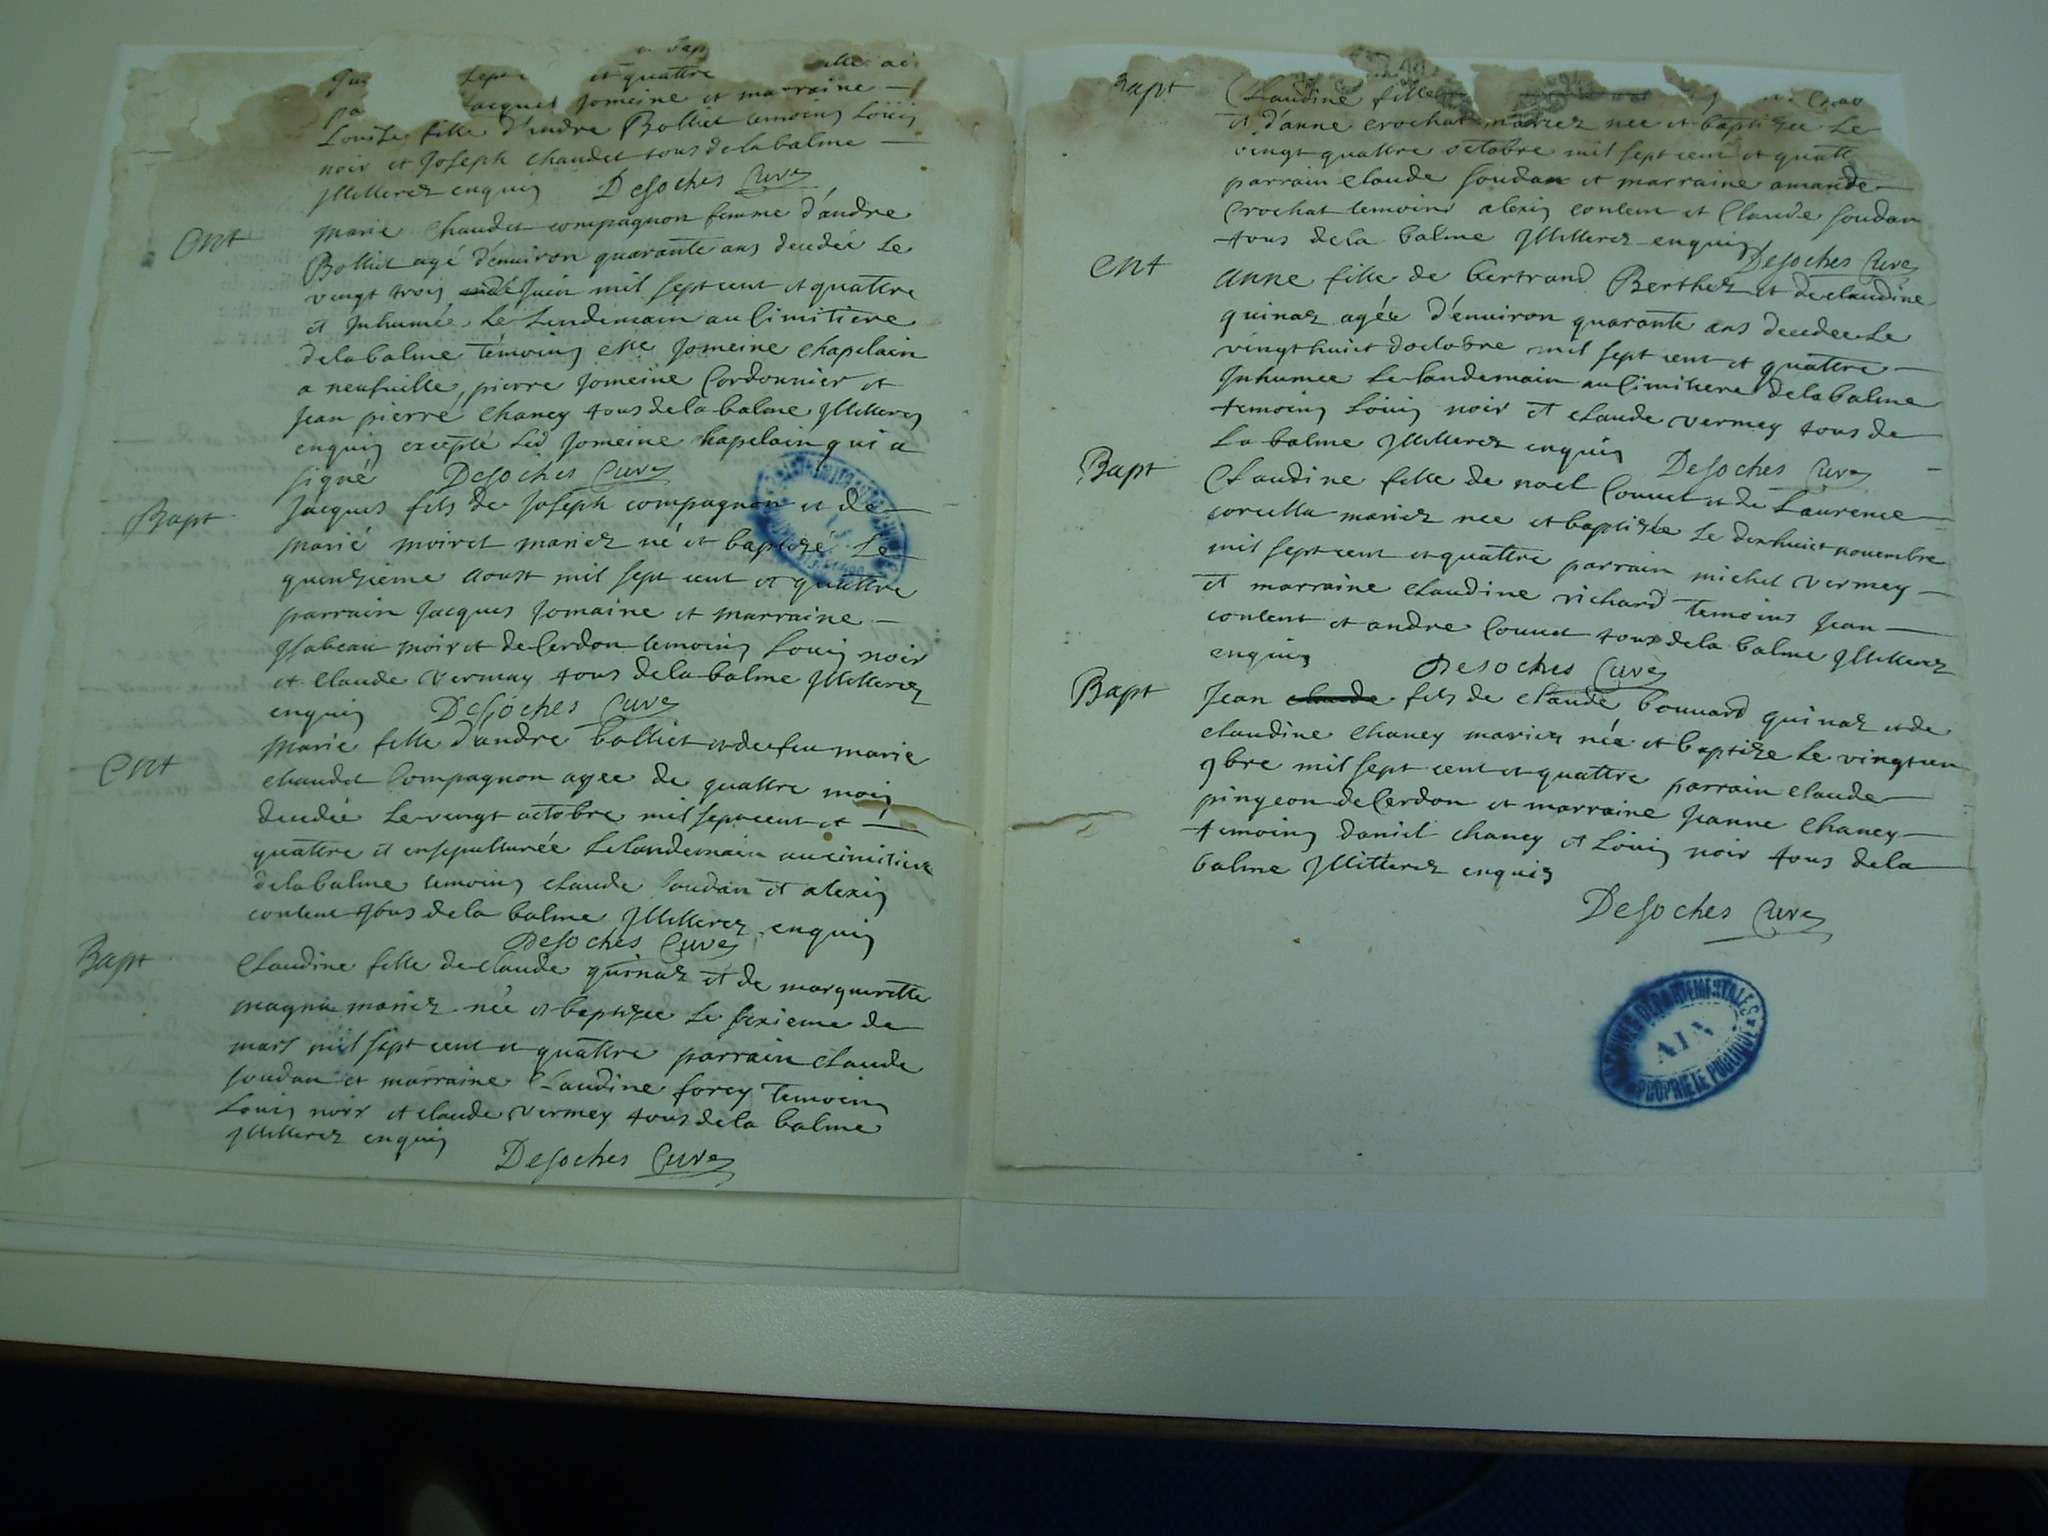 sept et quattre
Jacques Jomeine et marraine
Louise fille d'andre Bolliet temoins Louis
noir et Joseph chaudet tous de la balme
Illitterez enquis Desoches Curé
Ent
Marie Chaudet compagnon femme d'andre
Bolliet agé d'environ quarante ans decedée le
vingt trois Juin mil sept cent et quattre
et Inhumée le Lendemain au Cimitiere
de la balme temoins Jomeine chapelain
a neufuille, pierre Jomeine Cordonnier et
Jean pierre Chaney tous de la balme Illitterez
enquis excepté Led Jomeine chapelain qui a
signé Desoches Curé
Bapt
Jacques fils de Joseph compagnon et de
marie moiret mariez né et baptizé Le
quenzieme aoust mil sept cent et quattre
parrain Jacques Jomaine et marraine
Isabeau moiret de Cerdon temoins Louis noir
et Claude vermay tous de la balme Illitterez
enquis Desoches Curé
Ent
Marie fille d'andre bolliet et de feu marie
chaudet Compagnon agee de quattre mois
decedée le vingt octobre mil sept cent et
quattre et ensepulturée Le landemain au cimitiere
de la balme temoins claude soudan et alexis
contene tous de la balme Illitterez enquis
Desoches Curé
Bapt
Claudine fille de claude quinaz et de marguerette
magnin mariez née et baptizee le sixieme de
mars mil sept cent et quattre parrain claude
soudan et marraine Claudine forey temoins
Louis noir et claude vermey tous de la balme
Illitterez enquis
Desoches Curé
Bapt
Claudine fille
et d'anne crochat mariez nee et baptizee Le
vingt quattre octobre mil sept cent et quatt
parrain claude soudan et marraine amande
Crochat temoins alexis contene et Claude soudan
tous de la balme Illitterez enquis
Desoches Curé
Ent
anne fille de bertrand Berthet et de claudine
quinaz agée d'environ quarante ans decedee Le
vingt huict d'octobre mil sept cent et quattre
Inhumee le landemain au Cimitiere de la balme
temoins Louis noir et claude vermey tous de
La balme Illitterez enquis Desoches Curé
Bapt
Claudine fille de noel Couuet et de Laurence
corcella mariez nee et baptizée le dixhuict nouembre
mil sept cent et quattre parrain michel vermey
et marraine claudine richard temoins Jean
contene et andre Couuet tous de la balme Illitterez
enquis Desoches Curé
Bapt
Jean claude fils de claude bouuard quinaz et de
claudine Chaney mariez née et baptize Le vingt un
9bre mil sept cent et quattre parrain claude
pingeon de Cerdon et marraine Jeanne Chaney
temoins daniel chaney et Louis noir tous de la
balme Illitterez enquis
Desoches Curé
ARCHIVES DEPARTEMENTALES
AIN
PROPRIETE PUBLIQUE